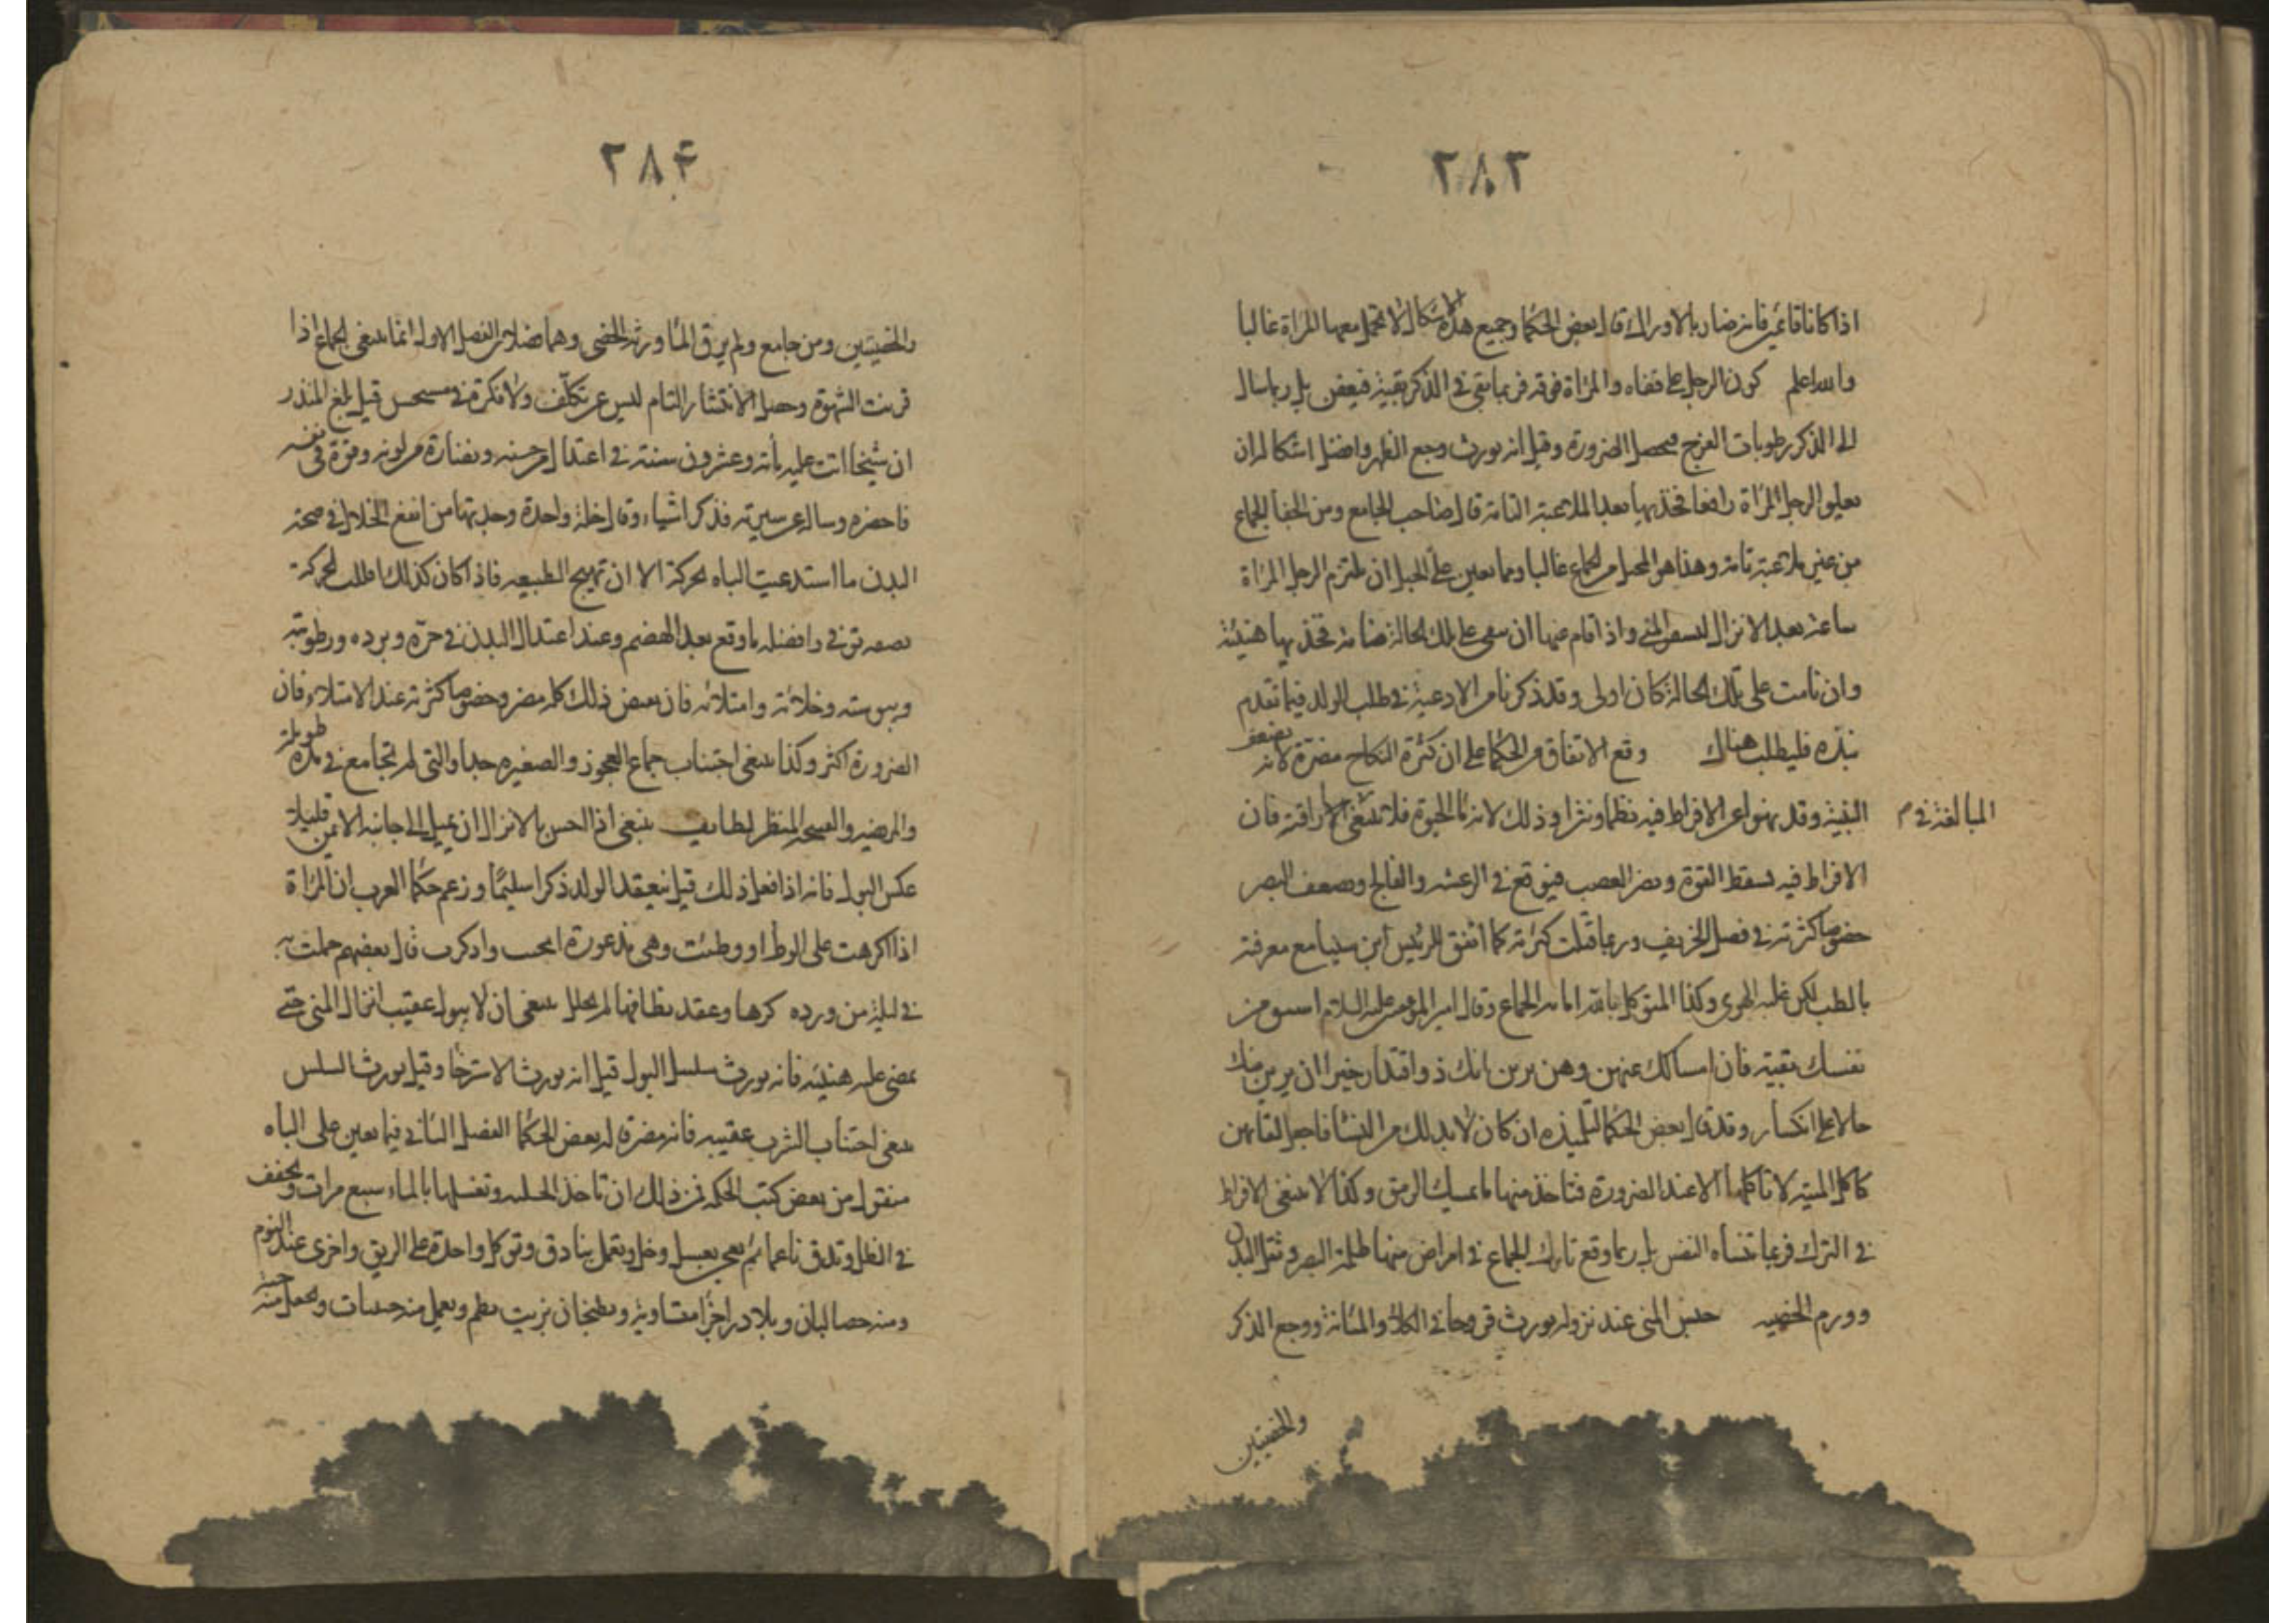 ٢٨٣
اذا كانا قائمين فانه ضار بالاوراك قال بعض الحكما وجميع هذه الاشكال لا تحمل معها المراة غالبا
والله اعلم كون الرجل على قفاه والمراة فوقه فربما بقى فى الذكر بقية فيعفن بل ربما سال
الى الذكر رطوبات الفرج فيحصل الضرورة وقيل انه يورث وجع الظهر وافضل اشكاله ان
يعلو الرجل المراة رافعا فخذيها بعد الملاعبة التامة قال صاحب الجامع ومن الجفا الجماع
من غير ملاعبة تامة وهذا هو المحبل من الجماع غالبا ومما يعين على الحبل ان يلتزم الرجل المراة
ساعة بعد الانزال المنى واذا قام عنها ان تبقى على تلك الحالة ضامة فخذيها هنيئة
وان نامت على تلك الحالة كان اولى وقد ذكرنا من الادعية فى طلب الولد فيما تقدم
نبذه فليطلب هناك وقع الاتفاق من الحكما على ان كثرة النكاح مضرة لانه يضعف
البنية وقد نهوا عن الافراط فيه نظما ونثرا وذلك لانه ما الحيوة فلا ينبغى اراقته فان
المبالغة فى م
الافراط فيه يسقط القوة ويضر العصب فيوقع فى الرعشه والفالج ويضعف البصر
خصوصا كثرته فى فصل الخريف وربما قتلت كثرته كما اتفق للرئيس ابن سينا مع معرفته
بالطب لكن غلبه الهوى وكذا المتوكل بالله اماته الجماع وقال امير المؤمنين عليه السلام استبق من
نفسك بقية فان امساكك عنهن وهن يرين انك ذو اقتدار خير ان يرين منك
حالا على انكسار وقد قال بعض الحكما لتلميذه ان كان لا بد لك من النسا فاجعل لقاءهن
كاكل الميتة لا تاكلها الا عند الضرورة فتاخذ منها ما يمسك الرمق وكذا لا ينبغى الافراط
فى الترك فربما تنساه النفس بل ربما وقع تارك الجماع فى امراض منها ظلمة البصر وثقل البدن
وورم الخصيه حبس المنى عند نزوله يورث قروحا فى الكلا والمثانة ووجع الذكر
والخصيتين
٢٨۴
والخصيتين ومن جامع ولم يرق الما ورث الحصى وهنا فصلان الفصل الاول انما ينبغى الجماع اذا
قويت الشهوة وحصل الانتشار التام ليس عن تكلف ولا فكرة فى مستحسن قيل بلغ المنذر
ان شيخا اتت عليه مأته وعشرون سنة فى اعتدال من جسمه ونضارة من لونه وقوة فى نفسه
فاحضره وساله عن سيرته فذكر اشياء وقال خلة واحدة وجدتها من انفع الخلال فى صحة
البدن ما استدعيت الباه بحركة الا ان تهيج الطبيعه فاذا كان كذلك اطلب الحركة
وافضله ما وقع بعد الهضم وعند اعتدال البدن فى حره وبرده ورطوبته
ويبوسته وخلائه وامتلائه فان بعض ذلك كله مضر وخصوصا كثرته عند الامتلاء فان
الضرورة اكثر وكذا ينبغى اجتناب جماع العجوز والصغيره جدا والتى لم تجامع فى مدة طويلة
والمريضه والقبيحه المنظر لطايف ينبغى اذا احس بالانزال ان يميل الى جانبه الايمن قليلا
عكس البول فانه اذا فعل ذلك قيل ينعقد الولد ذكرا سليما وزعم حكما العرب ان المراة
اذا اكرهت على الوطأ او وطئت وهى مذعورة انجبت واذكرت قال بعضهم حملت به
فى ليلة من ورده كرها وعقد نطاقها لم يحلل ينبغى ان لا يبول عقيب انزال المنى حتى
يمضى عليه هنيئه فانه يورث سلسل البول قيل انه يورث الاسترخا وقيل يورث السلس
ينبغى اجتناب الشرب عقيبه فانه مضرة له بعض الحكما الفصل الثانى فيما يعين على الباه
منقول من بعض كتب الحكمه فمن ذلك ان تاخذ الحلبه وتغسلها بالماء سبع مرات وتجفف
فى الظل وتدق ناعما ثم يعجن بعسل وخل ويعمل بنادق وتوكل واحدة على الريق واخرى عند النوم
ومنه حصا لبان وبلادر اجزا متساوية ويطبخان بزيت ويعمل منه حبات ويجعل منه حبة